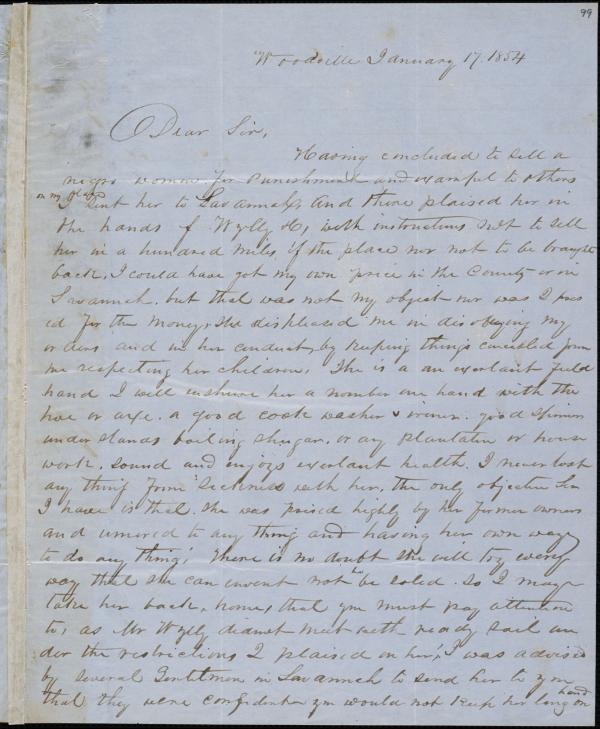 99
Woodville January 17. 1854
Dear Sir,
Having concluded to sell a
negro woman for Punishment and exampel to others
on my place
I sent her to Savannah, and there plaised her in
the hands of Wylly &c, with instructions not to sell
her in a hundred miles of the place nor not to be brought
back, I could have got my own price in the County or in
Savannah. but that was not my object nor was I
ed for the money, she displeased me in disobeying my
orders and in her conduct, by keeping things conceled from
me respecting her children, She is a an exerlant field
hand I will inshure her a number one hand with the
hoe or axe. a good cook washer & irener. good spinner
understands boiling shugar, or any plantation or house
work. sound and enjoys exerlant health. I never lost
any thing from Sickness with her, the only objection Sir
I have is that she was praised highly by her former owners
and umered to any thing and having her own way
to do any thing; There is no doubt she will try every
way that she can invent not to be soled. so I may
take her back, home, that you must pay attention
to, as Mr Wylly didnot meet with ready sail un
der the restrictions I plaised on her; I was advised
by several Gentlemen in Savannah to send her to you
that they were confident you would not keep her long on
hand